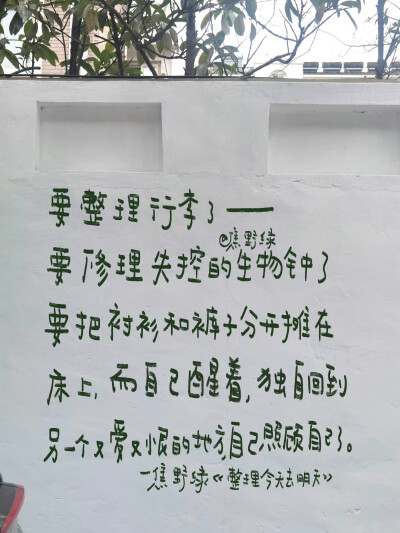 要整理行李了——
@焦野绿
要修理失控的生物钟了
要把衬衫和裤子分开摊在
床上，而自己醒着，独自回到
另一个又爱又恨的地方自己照顾自己了。
—焦野绿《整理今天去明天》